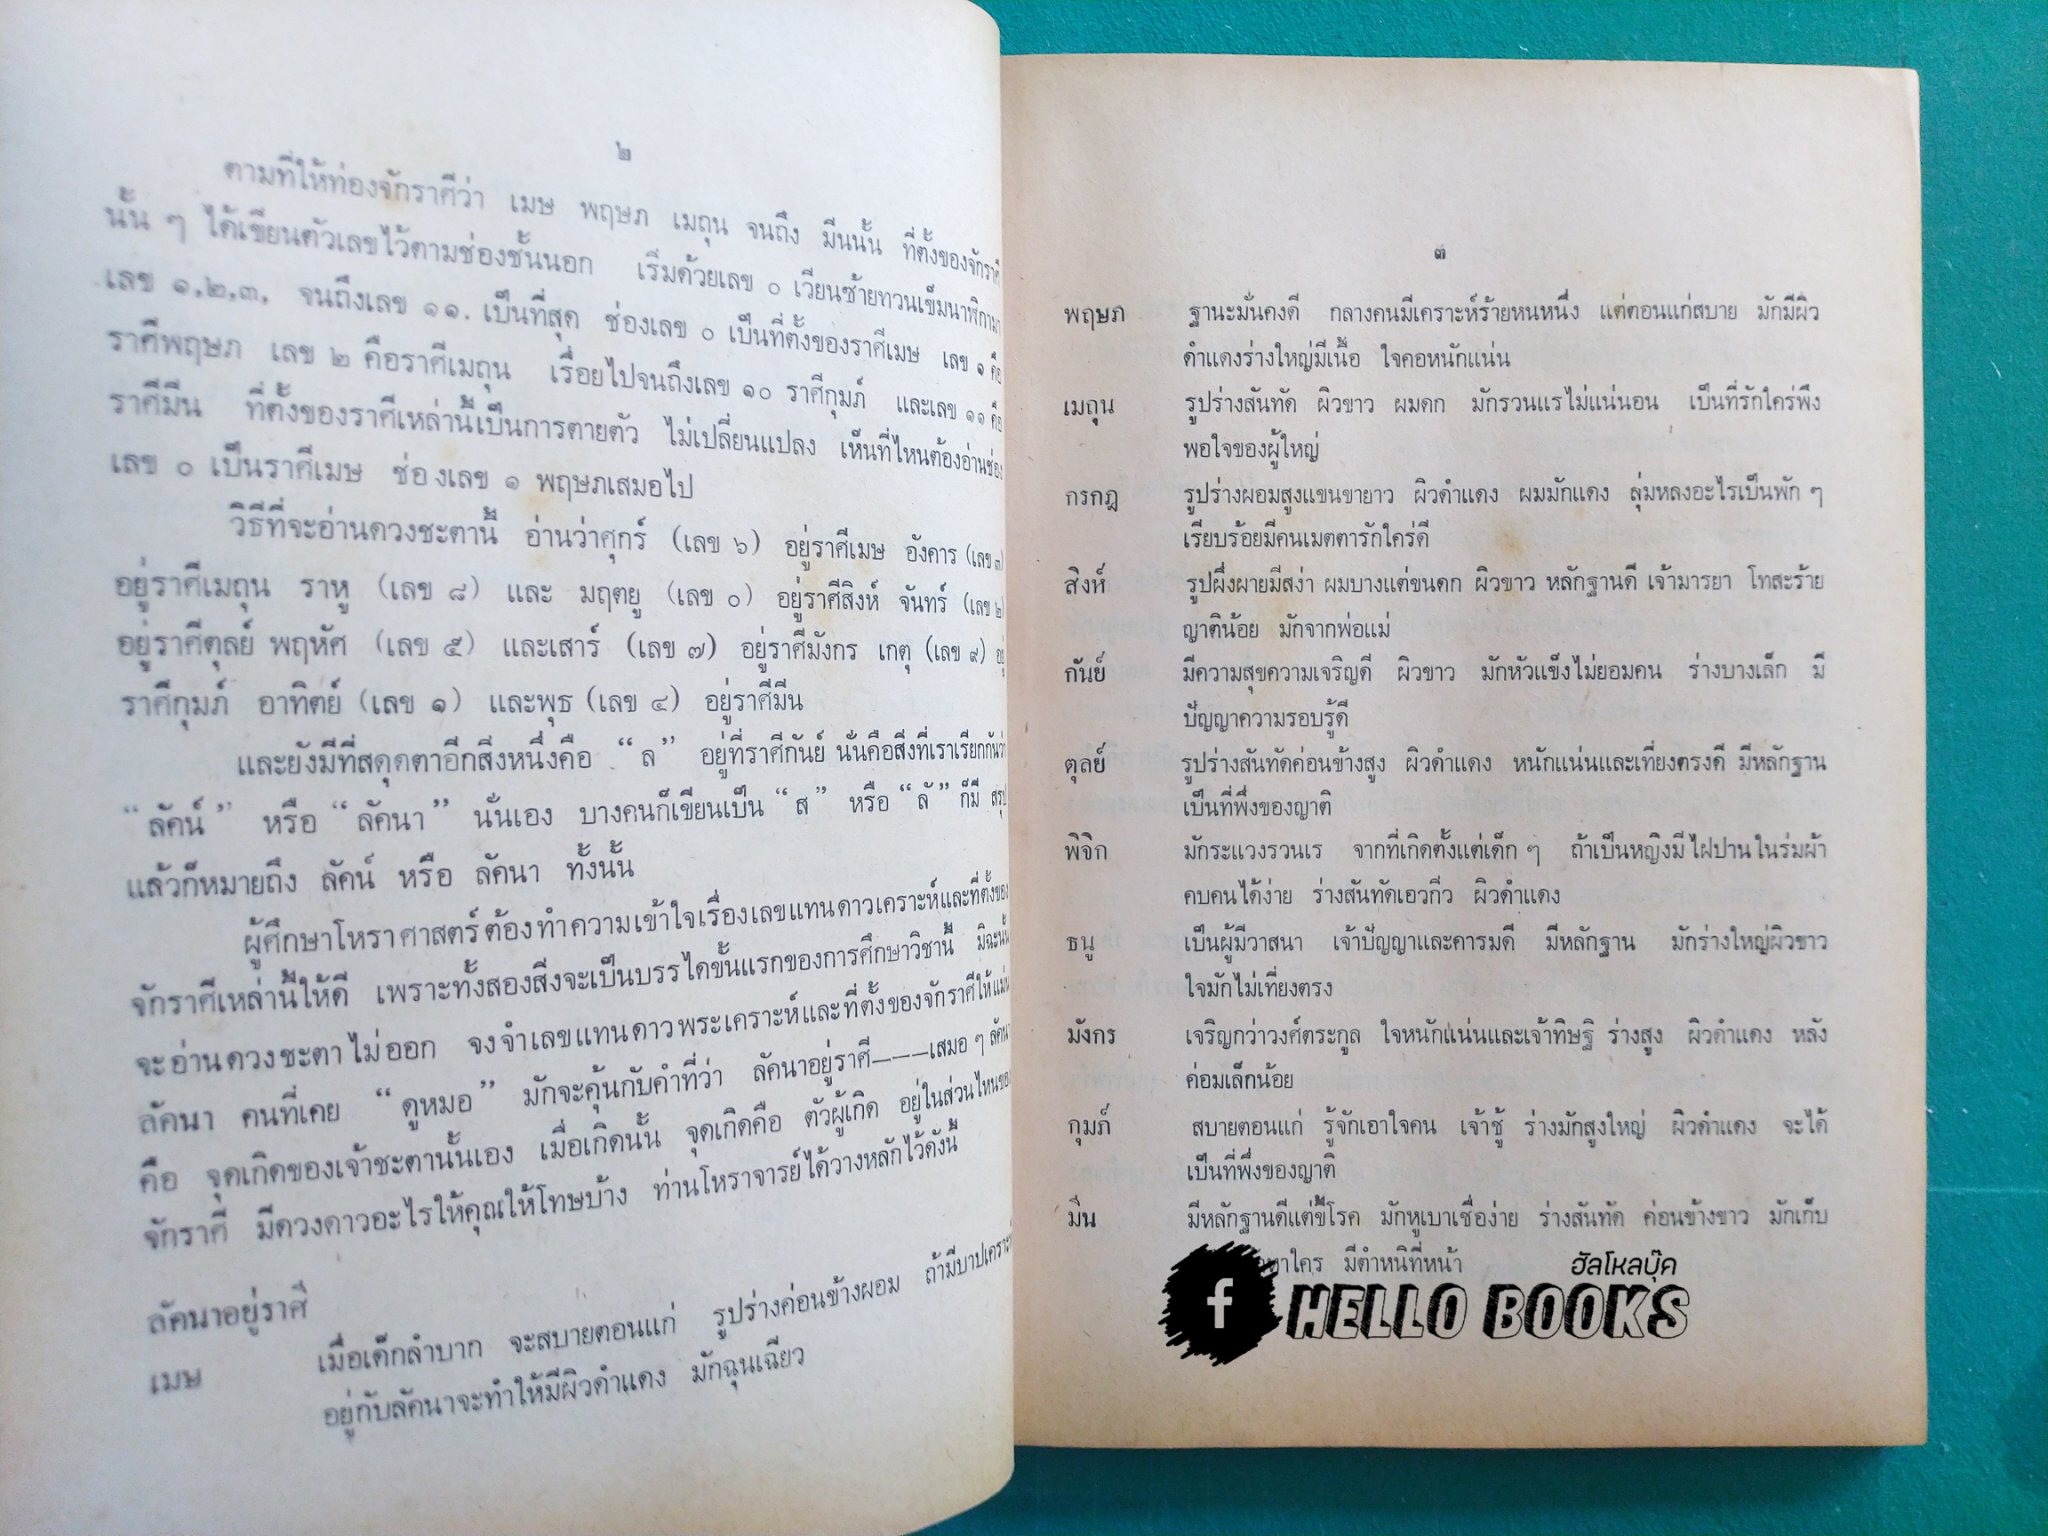 ๒
ตามที่ให้ท่องจักราศีว่า เมษ พฤษภ เมถุน จนถึง มีนนั้น ที่ตั้งของจักราศี
นั้น ๆ ได้เขียนตัวเลขไว้ตามช่องชั้นนอก เริ่มด้วยเลข ๐ เวียนซ้ายทวนเข็มนาฬิกามา
เลข ๑,๒,๓, จนถึงเลข ๑๑. เป็นที่สุด ช่องเลข ๐ เป็นที่ตั้งของราศีเมษ เลข ๑ คือ
ราศีพฤษภ เลข ๒ คือราศีเมถุน เรื่อยไปจนถึงเลข ๑๐ ราศีกุมภ์ และเลข ๑๑ คือ
ราศีมีน ที่ตั้งของราศีเหล่านี้เป็นการตายตัว ไม่เปลี่ยนแปลง เห็นที่ไหนต้องอ่านช่อง
เลข ๐ เป็นราศีเมษ ช่องเลข ๑ พฤษภเสมอไป
วิธีที่จะอ่านดวงชะตานี้ อ่านว่าศุกร์ (เลข ๖) อยู่ราศีเมษ อังคาร (เลข ๓)
อยู่ราศีเมถุน ราหู (เลข ๘) และ มฤตยู (เลข ๐) อยู่ราศีสิงห์ จันทร์ (เลข ๒)
อยู่ราศีตุลย์ พฤหัศ (เลข ๕) และเสาร์ (เลข ๗) อยู่ราศีมังกร เกตุ (เลข ๙) อยู่
ราศีกุมภ์ อาทิตย์ (เลข ๑) และพุธ (เลข ๔) อยู่ราศีมีน
และยังมีที่สดุดตาอีกสิ่งหนึ่งคือ “ล” อยู่ที่ราศีกันย์ นั่นคือสิ่งที่เราเรียกกันว่า
“ลัคน์” หรือ “ลัคนา” นั่นเอง บางคนก็เขียนเป็น “ส” หรือ “ลั” ก็มี สรุป
แล้วก็หมายถึง ลัคน์ หรือ ลัคนา ทั้งนั้น
ผู้ศึกษาโหราศาสตร์ต้องทำความเข้าใจเรื่องเลขแทนดาวเคราะห์และที่ตั้งของ
จักราศีเหล่านี้ให้ดี เพราะทั้งสองสิ่งจะเป็นบรรไดขั้นแรกของการศึกษาวิชานี้ มิฉะนั้น
จะอ่านดวงชะตาไม่ออก จงจำเลขแทนดาวพระเคราะห์และที่ตั้งของจักราศีให้แม่น
ลัคนา คนที่เคย “ดูหมอ” มักจะคุ้นกับคำที่ว่า ลัคนาอยู่ราศี---เสมอ ๆ ลัคนา
คือ จุดเกิดของเจ้าชะตานั้นเอง เมื่อเกิดนั้น จุดเกิดคือ ตัวผู้เกิด อยู่ในส่วนไหนของ
จักราศี มีดวงดาวอะไรให้คุณให้โทษบ้าง ท่านโหราจารย์ได้วางหลักไว้ดังนี้
ลัคนาอยู่ราศี
เมษ เมื่อเด็กลำบาก จะสบายตอนแก่ รูปร่างค่อนข้างผอม ถ้ามีบาปเคราะห์
อยู่กับลัคนาจะทำให้มีผิวดำแดง มักฉุนเฉียว
๓
พฤษภ ฐานะมั่นคงดี กลางคนมีเคราะห์ร้ายหนหนึ่ง แต่ตอนแก่สบาย มักมีผิว
ดำแดงร่างใหญ่มีเนื้อ ใจคอหนักแน่น
เมถุน รูปร่างสันทัด ผิวขาว ผมดก มักรวนแรไม่แน่นอน เป็นที่รักใคร่พึง
พอใจของผู้ใหญ่
กรกฎ รูปร่างผอมสูงแขนขายาว ผิวดำแดง ผมมักแดง ลุ่มหลงอะไรเป็นพัก ๆ
เรียบร้อยมีคนเมตตารักใคร่ดี
สิงห์ รูปผึ่งผายมีสง่า ผมบางแต่ขนดก ผิวขาว หลักฐานดี เจ้ามารยา โทสะร้าย
ญาติน้อย มักจากพ่อแม่
กันย์ มีความสุขความเจริญดี ผิวขาว มักหัวแข็งไม่ยอมคน ร่างบางเล็ก มี
ปัญญาความรอบรู้ดี
ตุลย์ รูปร่างสันทัดค่อนข้างสูง ผิวดำแดง หนักแน่นและเที่ยงตรงดี มีหลักฐาน
เป็นที่พึ่งของญาติ
พิจิก มักระแวงรวนเร จากที่เกิดตั้งแต่เด็ก ๆ ถ้าเป็นหญิงมีไฝปานในร่มผ้า
คบคนได้ง่าย ร่างสันทัดเอวกิ่ว ผิวดำแดง
ธนู เป็นผู้มีวาสนา เจ้าปัญญาและคารมดี มีหลักฐาน มักร่างใหญ่ผิวขาว
ใจมักไม่เที่ยงตรง
มังกร เจริญกว่าวงศ์ตระกูล ใจหนักแน่นและเจ้าทิษฐิ ร่างสูง ผิวดำแดง หลัง
ค่อมเล็กน้อย
กุมภ์ สบายตอนแก่ รู้จักเอาใจคน เจ้าชู้ ร่างมักสูงใหญ่ ผิวดำแดง จะได้
เป็นที่พึ่งของญาติ
มีน มีหลักฐานดีแต่ขี้โรค มักหูเบาเชื่อง่าย ร่างสันทัด ค่อนข้างขาว มักเก็บ
มีตำหนิที่หน้า
ฮัลโหลบุ๊ค
f HELLO BOOKS